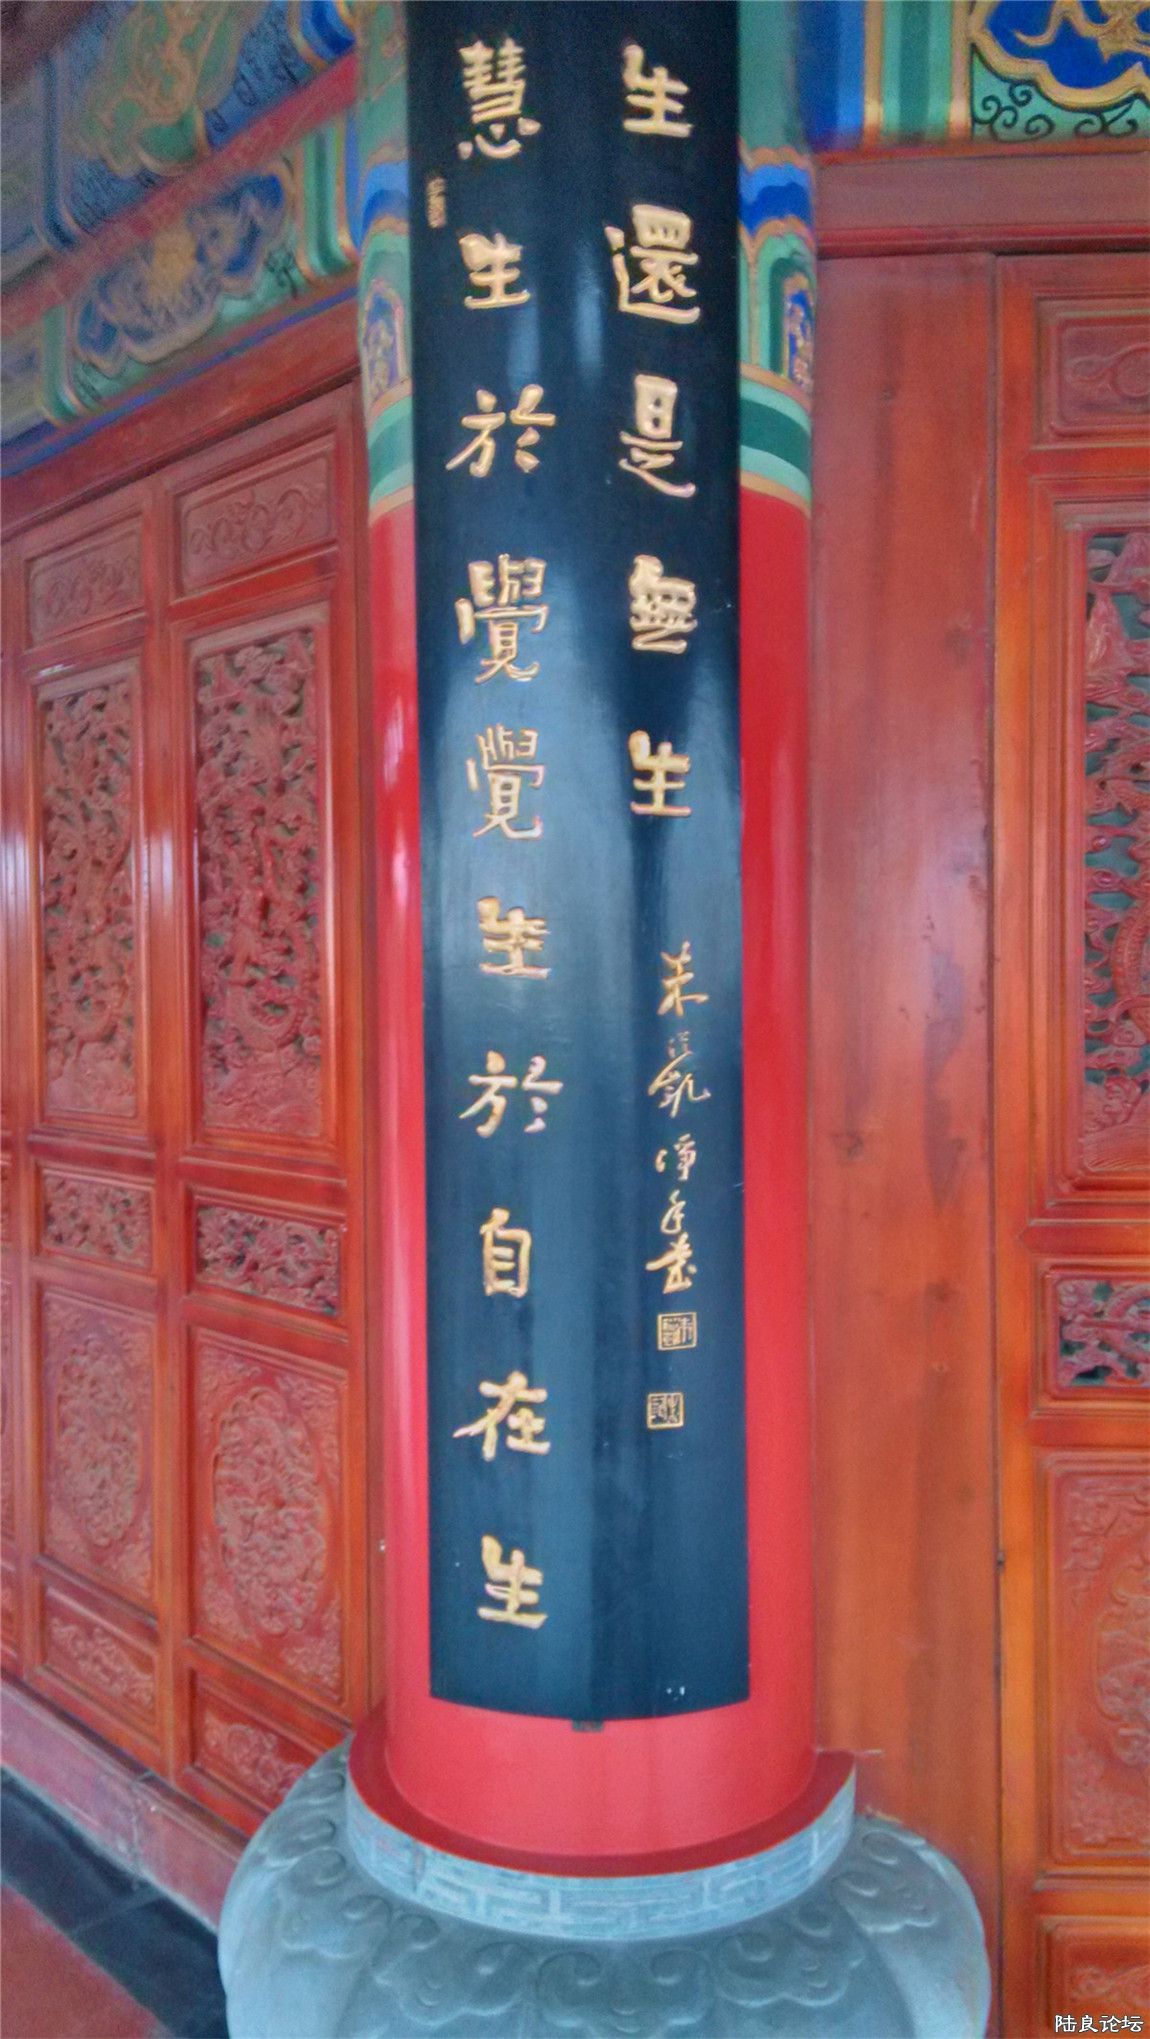 生還是無生
朱凱淨手書
慧生於覺覺生於自在生
陆良论坛